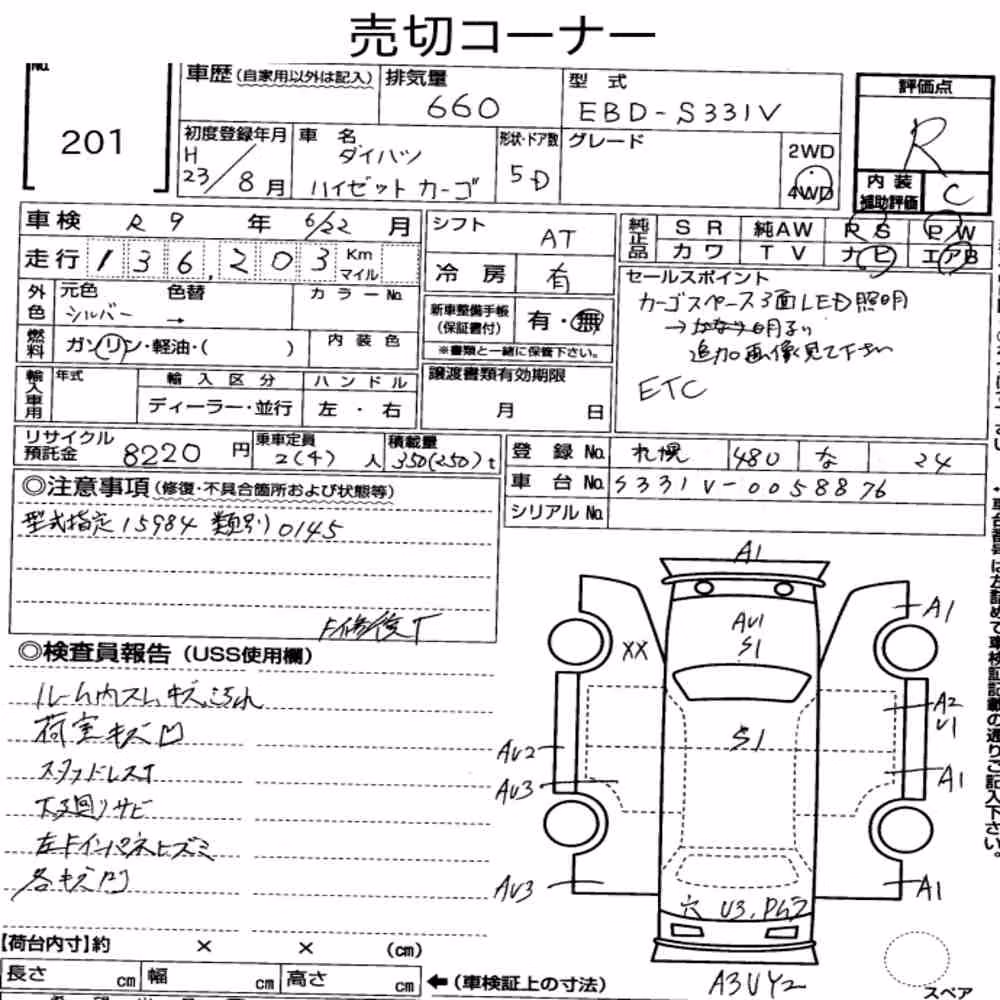 売切コーナー
No.
201
車歴 (自家用以外は記入)
排気量
660
型式
EBD-S331V
評価点
R
初度登録年月
H 23/8月
車名
ダイハツ
ハイゼットカーゴ
形状・ドア数
5D
グレード
2WD
4WD
内装補助評価
C
車検 R9年 6/22月
走行 136,203 Km マイル
シフト
AT
冷房
有
純正品
SR 純AW PS PW
カワ TV ナビ エアB
外色
元色 色替
シルバー →
カラーNo.
新車整備手帳(保証書付)
有・無
※書類と一緒に保管下さい。
セールスポイント
カーゴスペース3面LED照明
→かなり明るい
追加画像見て下さい
ETC
燃料
ガソリン・軽油・( )
内装色
輸入車用
年式
輸入区分
ディーラー・並行
ハンドル
左・右
譲渡書類有効期限
月 日
リサイクル預託金
8220円
乗車定員
2(4)人
積載量
350(250)t
登録No. 札幌 480 な 24
車台No. S331V-0058876
シリアルNo.
◎注意事項(修復・不具合箇所および状態等)
型式指定15984 類別0145
◎検査員報告(USS使用欄)
ルーム内スレ、キズ、汚れ
荷室キズ凹
スタッドレスT
下廻りサビ
左Fインパネヒズミ
各キズ凹
A1
AU1
S1
XX
A1
A2
U1
S1
AU2
AU3
A1
AU3
A1
穴 U3、Pムラ
A3UY2
スペア
【荷台内寸】約 × × (cm)
長さ cm 幅 cm 高さ cm
←(車検証上の寸法)
車台番号は左詰めで車検証記載の通りご記入下さい。